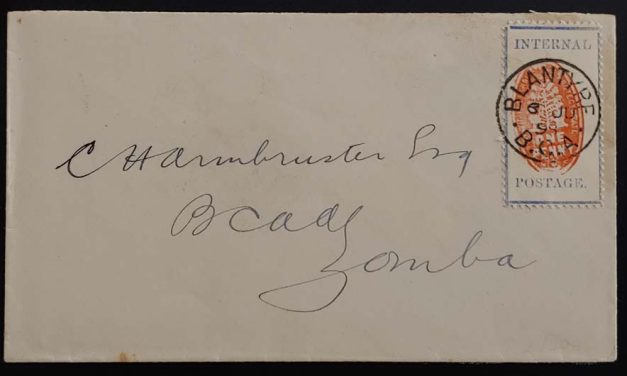 INTERNAL
BLANTYRE
6 JU
98
B.C.A
POSTAGE.
C Harmbruster Esq
BCAdy
Zomba